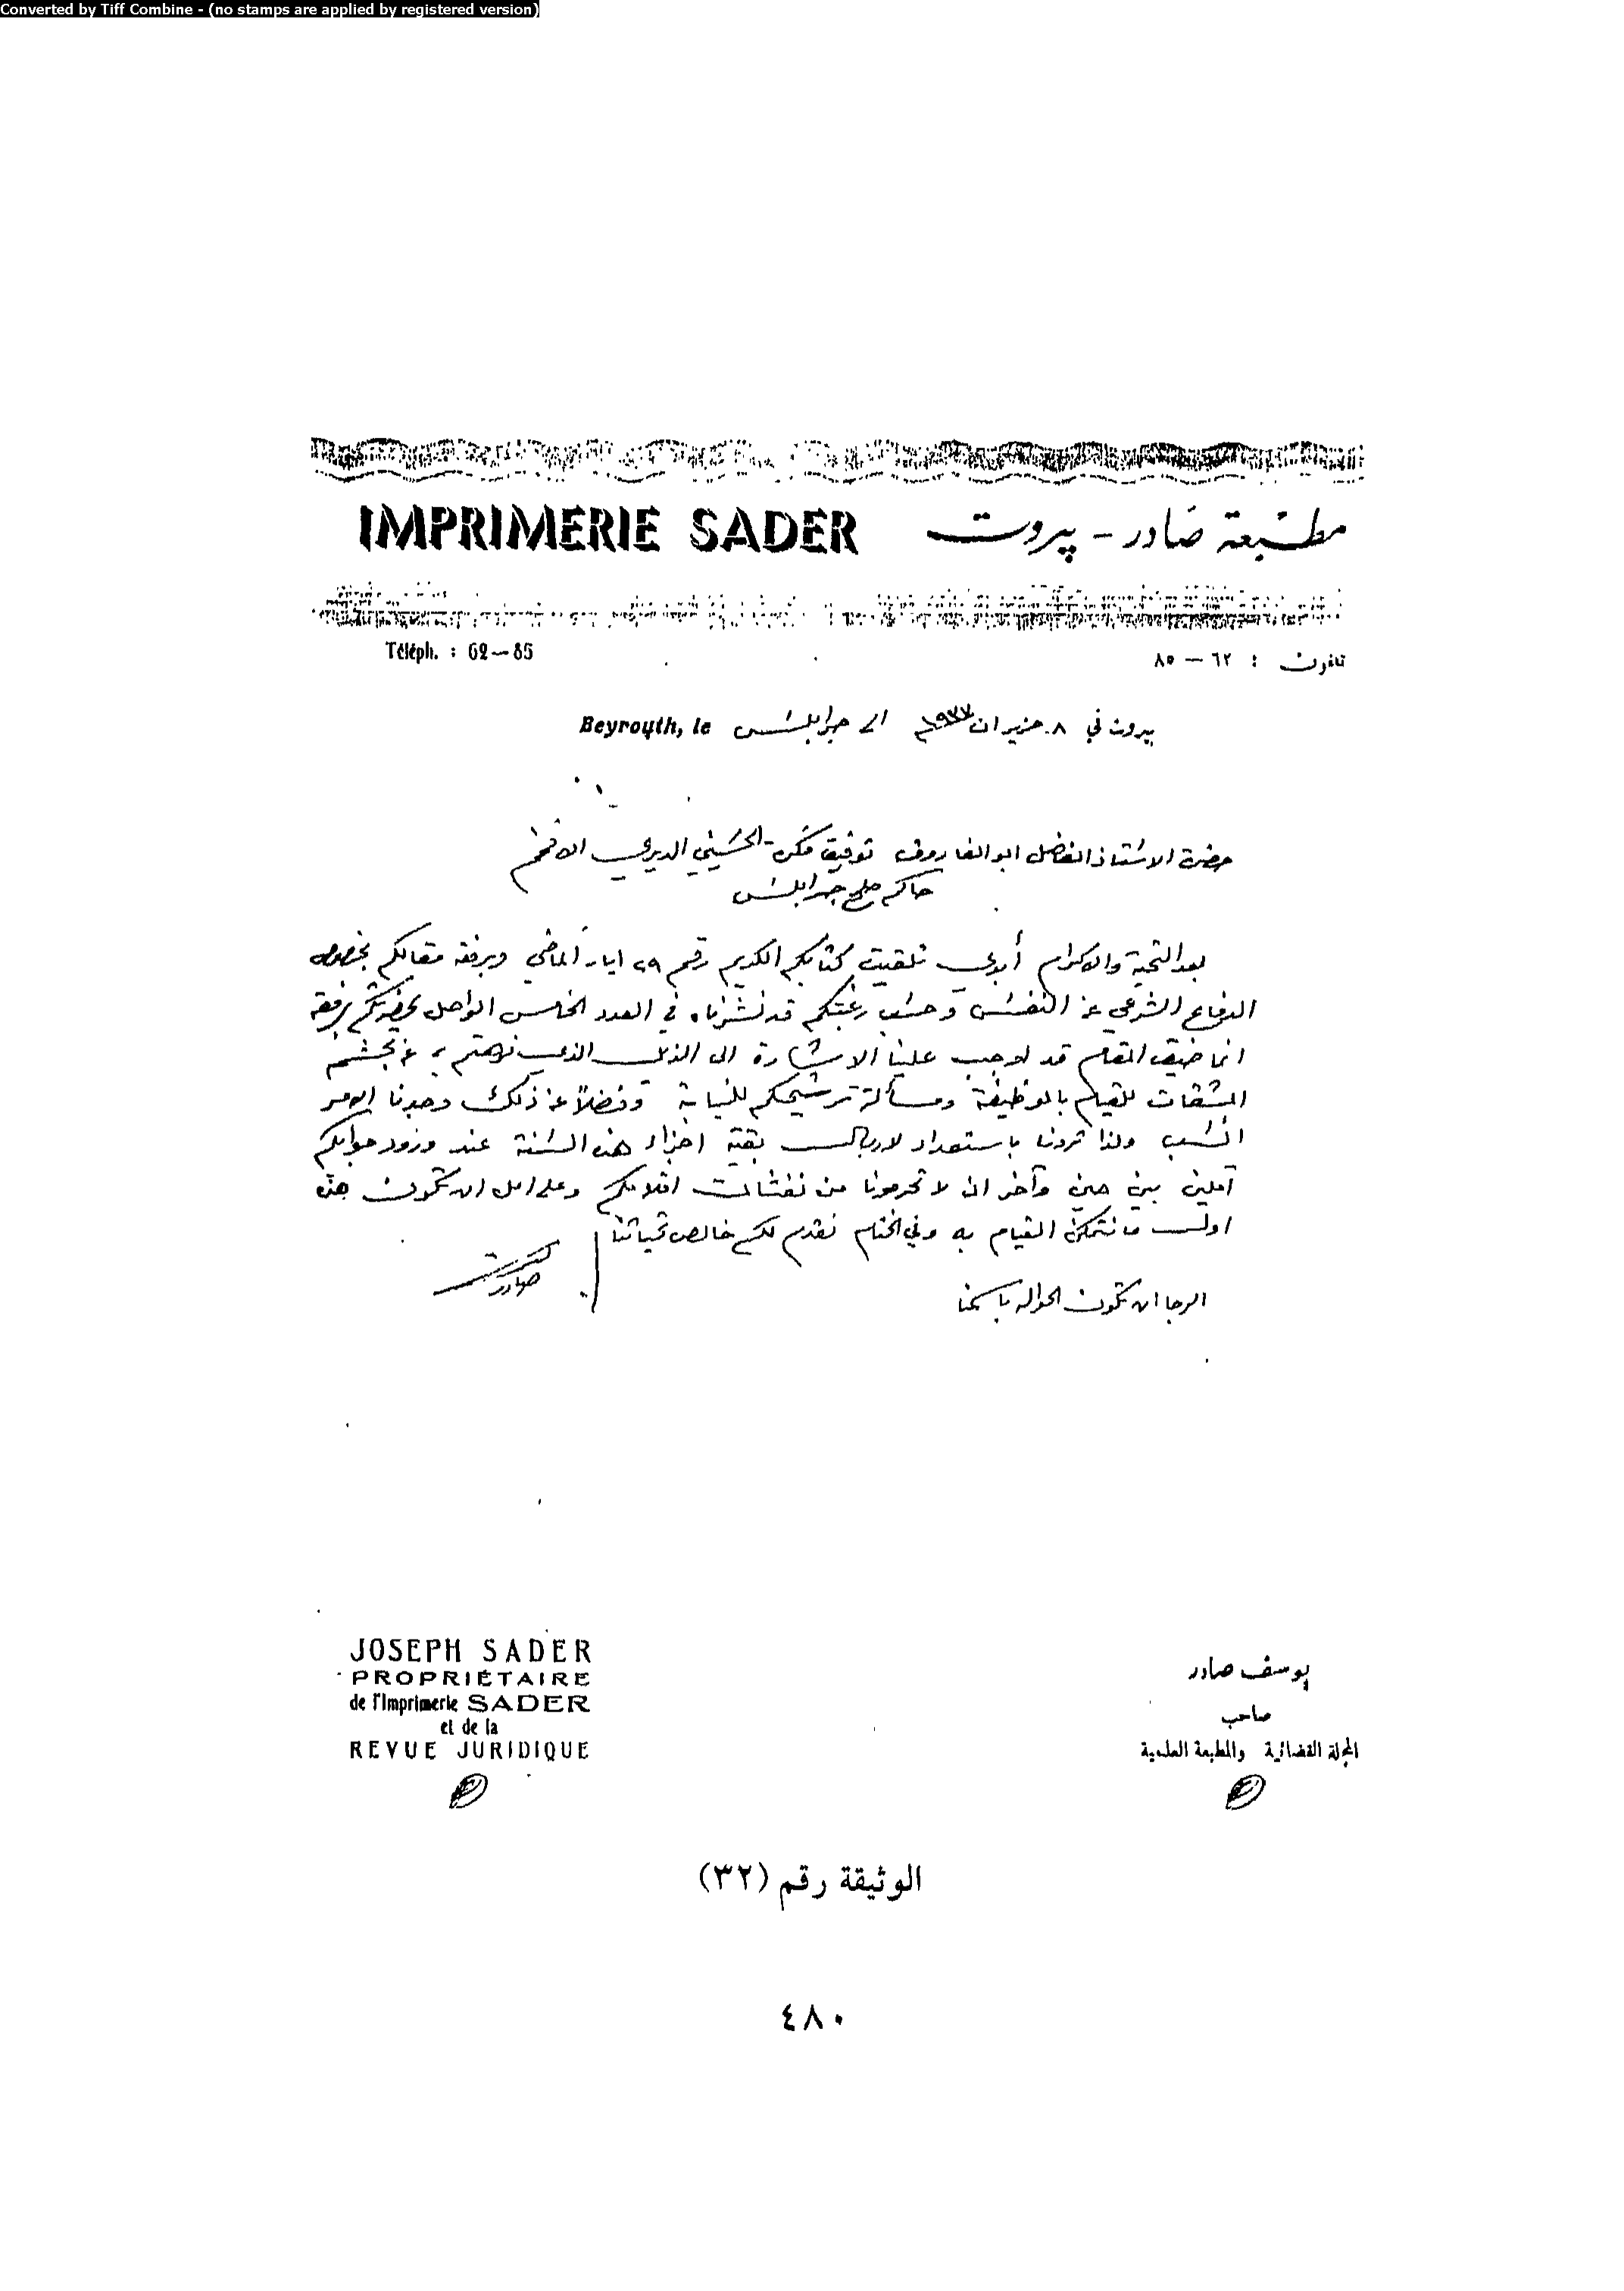 Converted by Tiff Combine - (no stamps are applied by registered version)
IMPRIMERIE SADER
مطبعة صادر - بيروت
Téléph. : 62-85
تلفون : ٦٢ - ٨٥
بيروت في ٨ حزيران ١٩٣٧ الى جرابلس Beyrouth, le
حضرة الاستاذ الفاضل ابو الفاروق توفيق الحسيني الديري الافخم
حاكم صلح جرابلس
بعد التحية والاكرام أبدي تلقيت كتابكم الكريم رقم ٢٩ ايار الماضي وبرفقه مقالكم بخصوص
الدفاع الشرعي عن النفس وحسب رغبتكم قد نشرناه في العدد الخامس الواصل لحضرتكم برفقه
انما ضيق المقام قد اوجب علينا الاشارة الى الذي نهتم به عن تجشم
المشقات للقيام بالوظيفة ومسألة ترشيحكم للنيابة وفضلاً عن ذلك وجدنا الامر
انسب ولذا ترونا باستعداد لارسال بقية اجزاء هذه السنة عند ورود جوابكم
آملين بين حين وآخر ان لا تحرمونا من نفثات اقلامكم وعلى امل ان تكون هذه
اول ما نتمكن القيام به وفي الختام نقدم لكم خالص تحياتنا
صادر
الرجا ان تكون الحوالة باسمنا
JOSEPH SADER
PROPRIÉTAIRE
de l'Imprimerie SADER
et de la
REVUE JURIDIQUE
يوسف صادر
صاحب
المجلة القضائية والمطبعة العلمية
الوثيقة رقم (٣٢)
٤٨٠